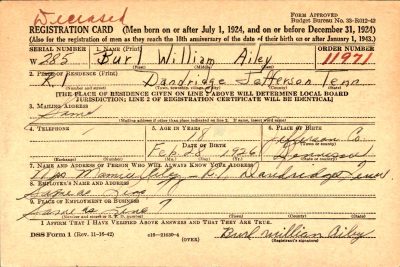 Deceased
FORM APPROVED
Budget Bureau No. 33-R012-42
REGISTRATION CARD (Men born on or after July 1, 1924, and on or before December 31, 1924)
(Also for the registration of men as they reach the 18th anniversary of the date of their birth on or after January 1, 1943.)
SERIAL NUMBER 1. NAME (Print) ORDER NUMBER
W 285 Burl William Ailey 11971
2. PLACE OF RESIDENCE (Print)
R1 Dandridge Jefferson Tenn
[THE PLACE OF RESIDENCE GIVEN ON LINE 2 ABOVE WILL DETERMINE LOCAL BOARD
JURISDICTION; LINE 2 OF REGISTRATION CERTIFICATE WILL BE IDENTICAL]
3. MAILING ADDRESS
Same
(Mailing address if other than place indicated on line 2. If same, insert word same)
4. TELEPHONE 5. AGE IN YEARS 6. PLACE OF BIRTH
18
Jefferson Co.
DATE OF BIRTH (Town or county)
Feb 28 1926
(Exchange) (Number) (Mo.) (Day) (Yr.) (State or country)
7. NAME AND ADDRESS OF PERSON WHO WILL ALWAYS KNOW YOUR ADDRESS
Mrs Mamie Ailey - R1 Dandridge Tenn
8. EMPLOYER'S NAME AND ADDRESS
Same as Line 7
9. PLACE OF EMPLOYMENT OR BUSINESS
Same as Line 7
(Number and street or R. F. D. number) (Town) (County) (State)
I AFFIRM THAT I HAVE VERIFIED ABOVE ANSWERS AND THAT THEY ARE TRUE.
DSS Form 1 (Rev. 11-16-42) 16-21630-4 Burl William Ailey
(OVER) (Registrant's signature)